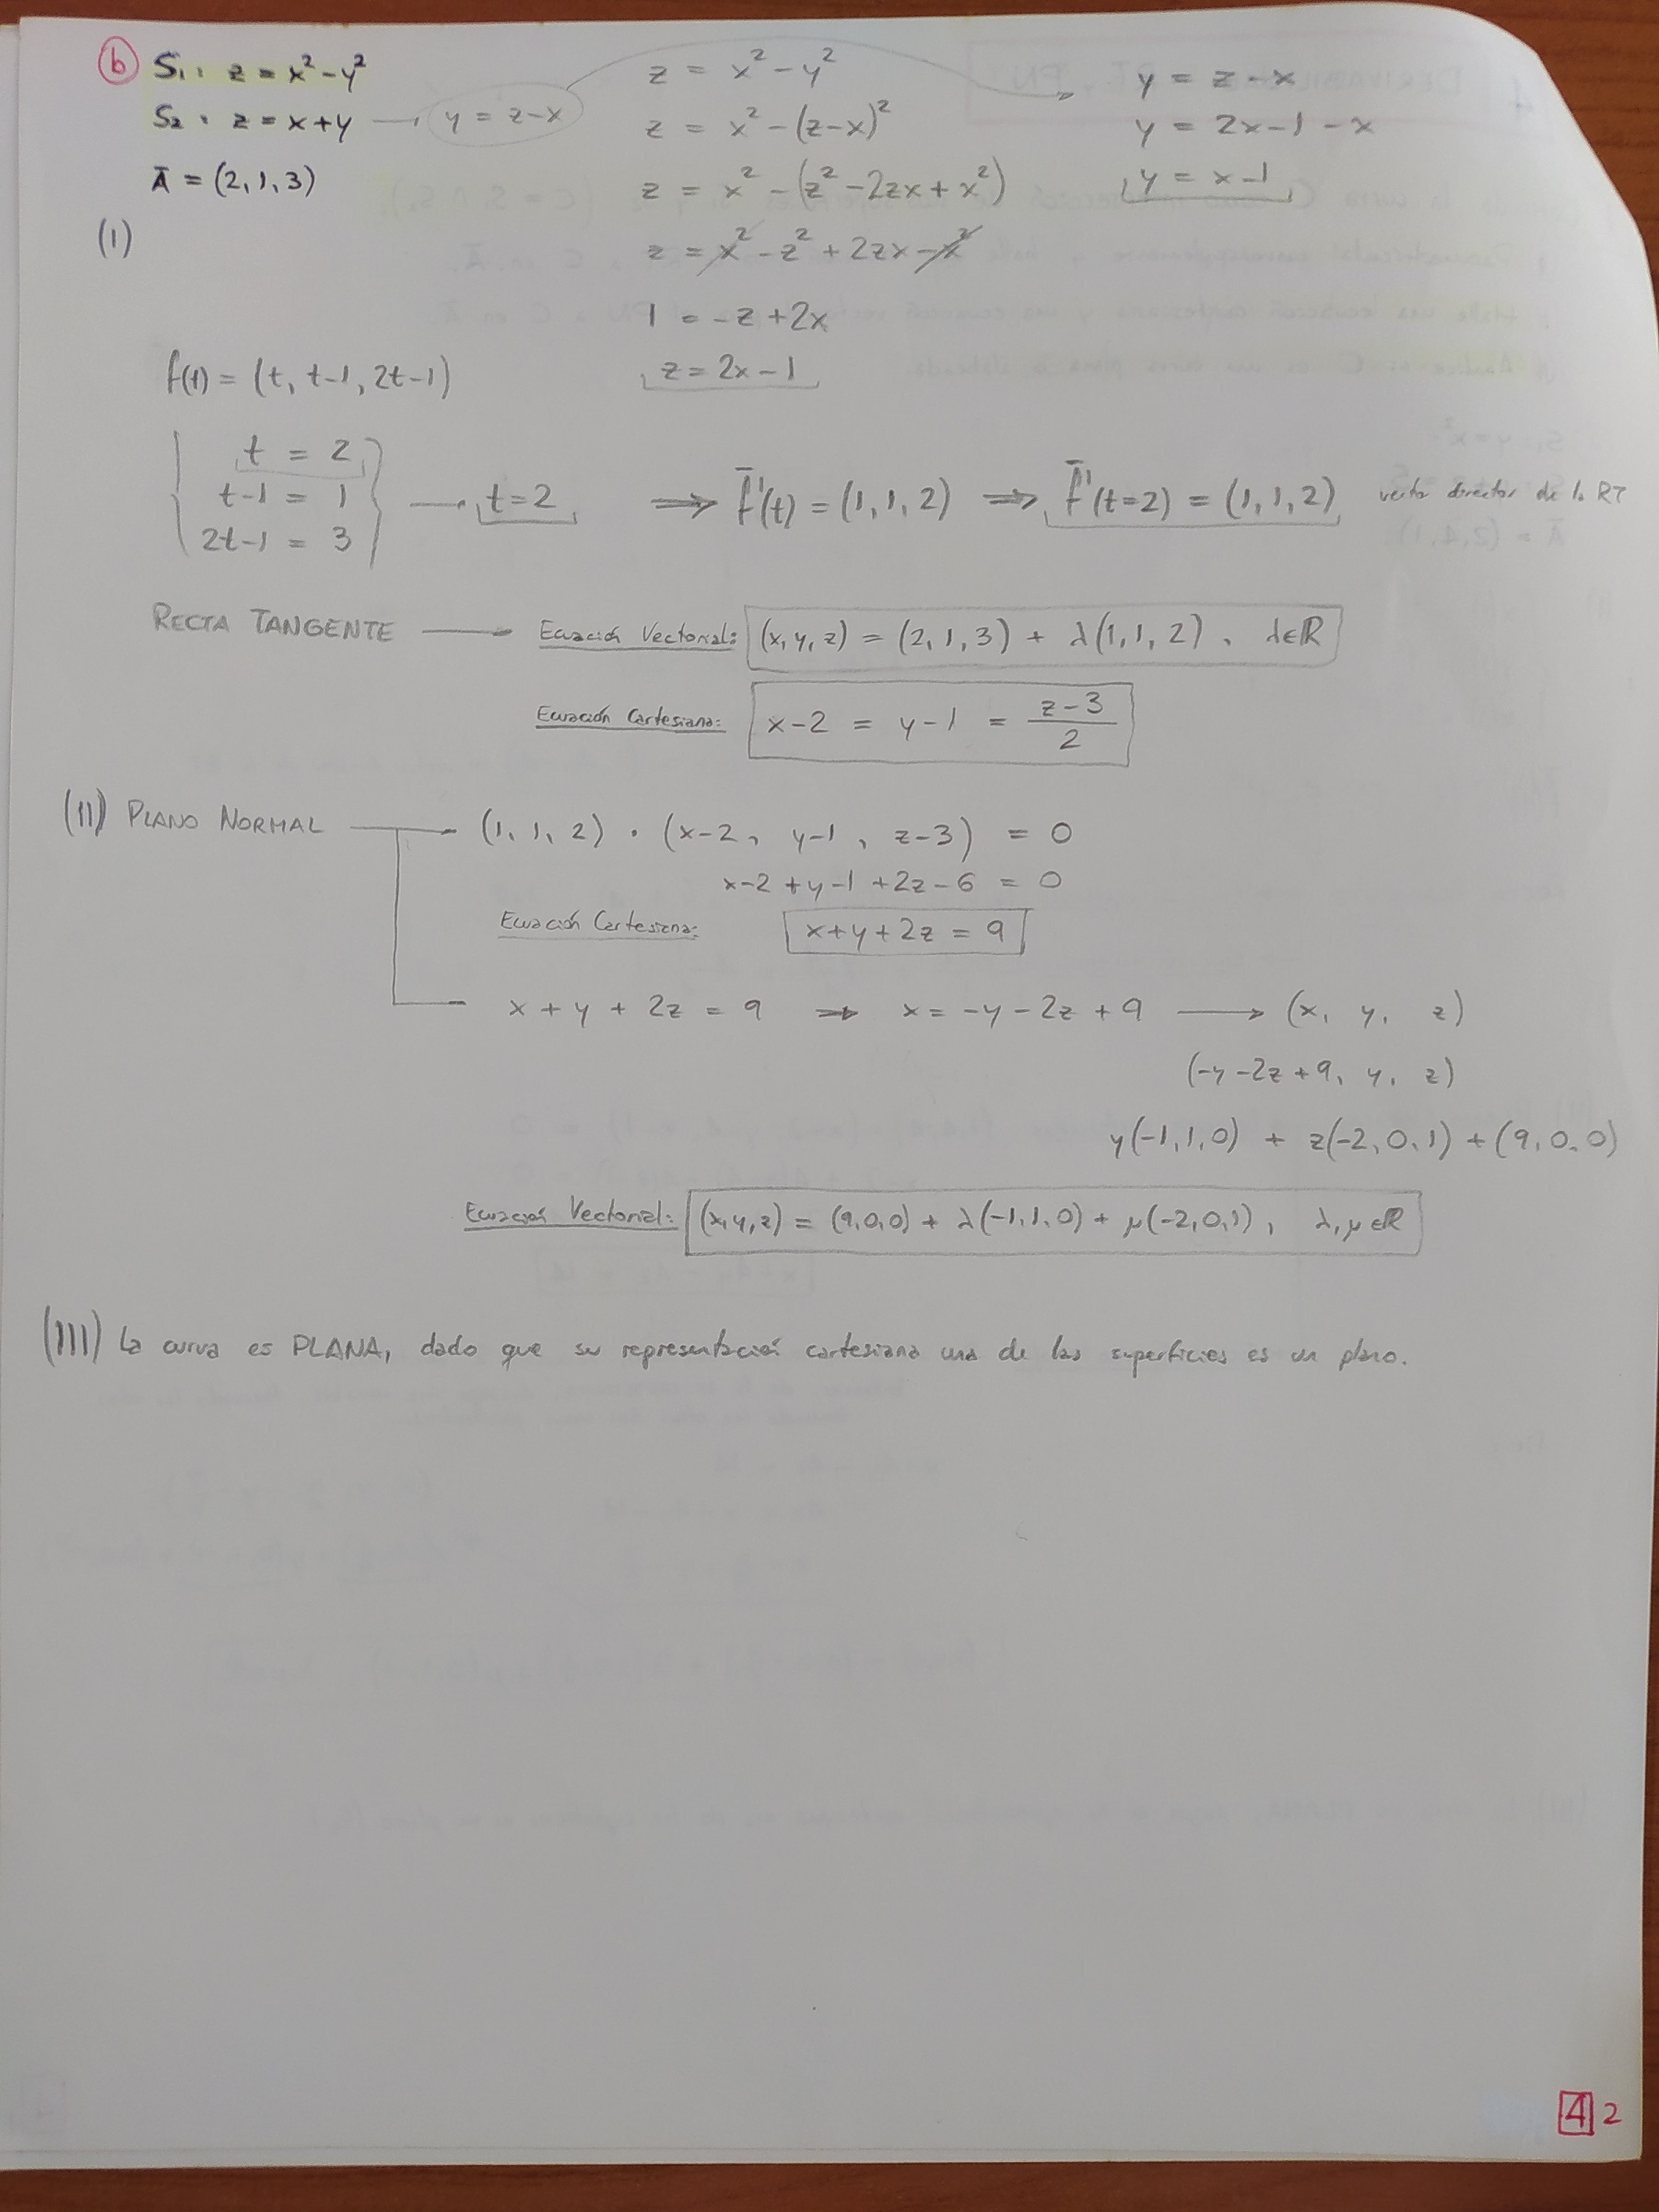 b S₁: z = x² - y²
S₂: z = x+y → y = z-x
Ā = (2,1,3)
z = x² - y²
z = x² - (z-x)²
z = x² - (z² - 2zx + x²)
z = x² - z² + 2zx - x²
1 = -z + 2x
z = 2x - 1
y = z - x
y = 2x-1 - x
y = x-1
(I)
f(t) = (t, t-1, 2t-1)
t = 2
t-1 = 1
2t-1 = 3
→ t=2 ⟹ f̄'(t) = (1,1,2) ⟹ f̄'(t=2) = (1,1,2) vector director de la RT
RECTA TANGENTE → Ecuación Vectorial: (x,y,z) = (2,1,3) + λ(1,1,2), λ∈ℝ
Ecuación Cartesiana: x-2 = y-1 = (z-3)/2
(II) PLANO NORMAL → (1,1,2) · (x-2, y-1, z-3) = 0
x-2 + y-1 + 2z-6 = 0
Ecuación Cartesiana: x+y+2z = 9
x + y + 2z = 9 ⟹ x = -y - 2z + 9 → (x, y, z)
(-y-2z+9, y, z)
y(-1,1,0) + z(-2,0,1) + (9,0,0)
Ecuación Vectorial: (x,y,z) = (9,0,0) + λ(-1,1,0) + μ(-2,0,1), λ,μ∈ℝ
(III) La curva es PLANA, dado que su representación cartesiana una de las superficies es un plano.
4 2